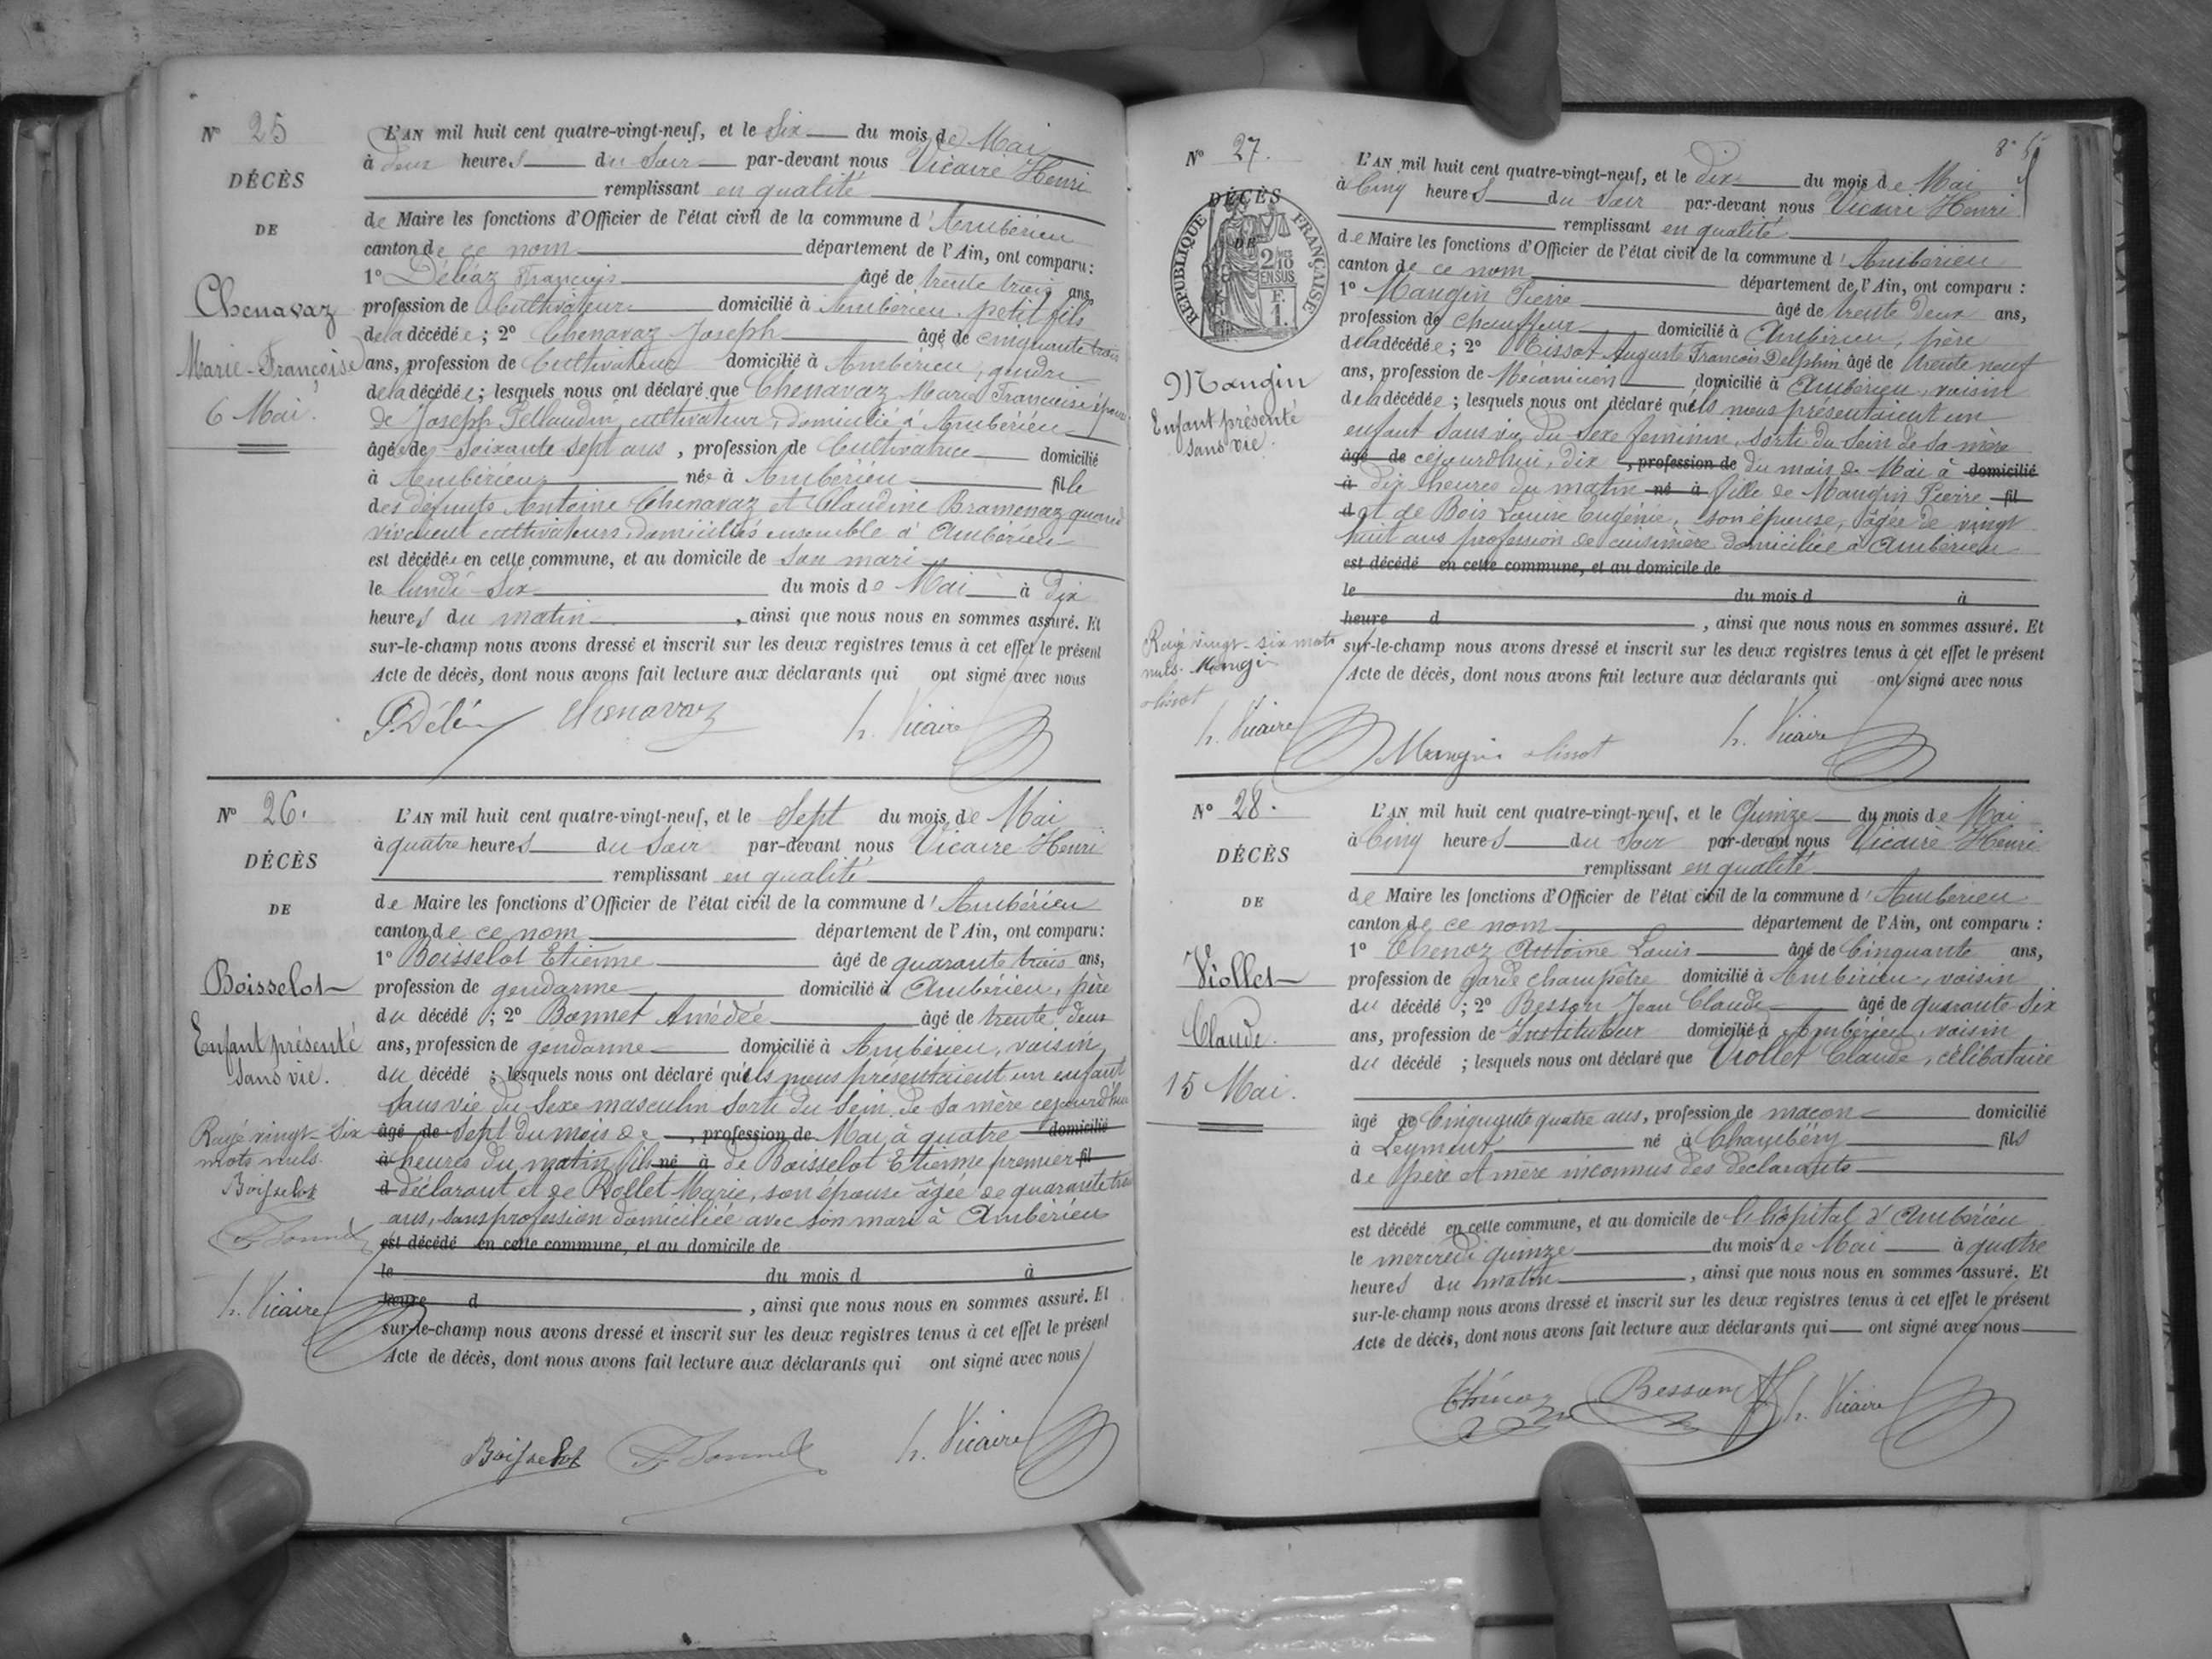 N° 25
DÉCÈS
DE
Chenavaz
Marie-Françoise
6 Mai.
L'AN mil huit cent quatre-vingt-neuf, et le Six du mois de Mai
à deux heures du Soir par-devant nous Vicaire Henri
remplissant en qualité
de Maire les fonctions d'Officier de l'état civil de la commune d'Ambérieu
canton de ce nom département de l'Ain, ont comparu :
1° Déléaz François âgé de trente trois ans,
profession de Cultivateur domicilié à Ambérieu, petit fils
de la décédée ; 2° Chenavaz Joseph âgé de cinquante trois
ans, profession de Cultivateur domicilié à Ambérieu, gendre
de la décédée ; lesquels nous ont déclaré que Chenavaz Marie Françoise épouse
de Joseph Pellaudin, cultivateur, domicilié à Ambérieu
âgée de Soixante sept ans, profession de Cultivatrice domicilié
à Ambérieu née à Ambérieu fille
des défunts Antoine Chenavaz et Claudine Bramenaz quand
vivaient cultivateurs, domiciliés ensemble à Ambérieu
est décédée en cette commune, et au domicile de Son mari
le lundi Six du mois de Mai à Dix
heures du matin, ainsi que nous nous en sommes assuré. Et
sur-le-champ nous avons dressé et inscrit sur les deux registres tenus à cet effet le présent
Acte de décès, dont nous avons fait lecture aux déclarants qui ont signé avec nous
Chenavaz h. Vicaire
N° 26.
DÉCÈS
DE
Boisselot
Enfant présenté
sans vie.
Rayé vingt-six
mots nuls.
Boisselot
Bonnet
h. Vicaire
L'AN mil huit cent quatre-vingt-neuf, et le Sept du mois de Mai
à quatre heures du Soir par-devant nous Vicaire Henri
remplissant en qualité
de Maire les fonctions d'Officier de l'état civil de la commune d'Ambérieu
canton de ce nom département de l'Ain, ont comparu :
1° Boisselot Etienne âgé de quarante trois ans,
profession de gendarme domicilié à Ambérieu, père
du décédé ; 2° Bonnet Amédée âgé de trente deux
ans, profession de gendarme domicilié à Ambérieu, voisin
du décédé ; lesquels nous ont déclaré qu'ils nous présentaient un enfant
sans vie du Sexe masculin Sorti du Sein de Sa mère cejourd'hui
âgé de Sept du mois de, profession de Mai, à quatre domicilié
à heures du matin fils né à de Boisselot Etienne premier fil
d déclarant et de Rollet Marie, son épouse âgée de quarante trois
ans, sans profession domiciliée avec Son mari à Ambérieu
est décédé en cette commune, et au domicile de
le du mois d à
heure d, ainsi que nous nous en sommes assuré. Et
sur-le-champ nous avons dressé et inscrit sur les deux registres tenus à cet effet le présent
Acte de décès, dont nous avons fait lecture aux déclarants qui ont signé avec nous
Boisselot Bonnet h. Vicaire
N° 27.
DÉCÈS
DE
RÉPUBLIQUE FRANÇAISE
2/10 EN SUS
F. 1.
Mangin
Enfant présenté
sans vie.
Rayé vingt-six mots
nuls. Mangin
h. Vicaire
L'AN mil huit cent quatre-vingt-neuf, et le Dix du mois de Mai
à Cinq heures du Soir par-devant nous Vicaire Henri
remplissant en qualité
de Maire les fonctions d'Officier de l'état civil de la commune d'Ambérieu
canton de ce nom département de l'Ain, ont comparu :
1° Mangin Pierre âgé de trente deux ans,
profession de chauffeur domicilié à Ambérieu, père
de la décédée ; 2° Auguste François Delphin âgé de trente neuf
ans, profession de Mécanicien domicilié à Ambérieu, voisin
de la décédée ; lesquels nous ont déclaré qu'ils nous présentaient un
enfant Sans vie, du Sexe feminin, sorti du Sein de Sa mère
âgé de cejourd'hui, dix, profession de du mois de Mai à domicilié
à dix heures du matin né à fille de Mangin Pierre fil
d et de Bois Louise Eugénie, son épouse, âgée de vingt
huit ans profession de cuisinière domiciliée à Ambérieu
est décédé en cette commune, et au domicile de
le du mois d à
heure d, ainsi que nous nous en sommes assuré. Et
sur-le-champ nous avons dressé et inscrit sur les deux registres tenus à cet effet le présent
Acte de décès, dont nous avons fait lecture aux déclarants qui ont signé avec nous
Mangin h. Vicaire
N° 28.
DÉCÈS
DE
Viollet
Claude.
15 Mai.
L'AN mil huit cent quatre-vingt-neuf, et le Quinze du mois de Mai
à Cinq heures du Soir par-devant nous Vicaire Henri
remplissant en qualité
de Maire les fonctions d'Officier de l'état civil de la commune d'Ambérieu
canton de ce nom département de l'Ain, ont comparu :
1° Chenoz Antoine Louis âgé de Cinquante ans,
profession de garde champêtre domicilié à Ambérieu, voisin
du décédé ; 2° Besson Jean Claude âgé de quarante-Six
ans, profession de Instituteur domicilié à Ambérieu, voisin
du décédé ; lesquels nous ont déclaré que Viollet Claude, célibataire
âgé de Cinquante quatre ans, profession de maçon domicilié
à Leyment né à Chambéry fils
de père et mère inconnus des déclarants
est décédé en cette commune, et au domicile de l'hôpital d'Ambérieu
le mercredi quinze du mois de Mai à quatre
heures du matin, ainsi que nous nous en sommes assuré. Et
sur-le-champ nous avons dressé et inscrit sur les deux registres tenus à cet effet le présent
Acte de décès, dont nous avons fait lecture aux déclarants qui ont signé avec nous
Besson h. Vicaire